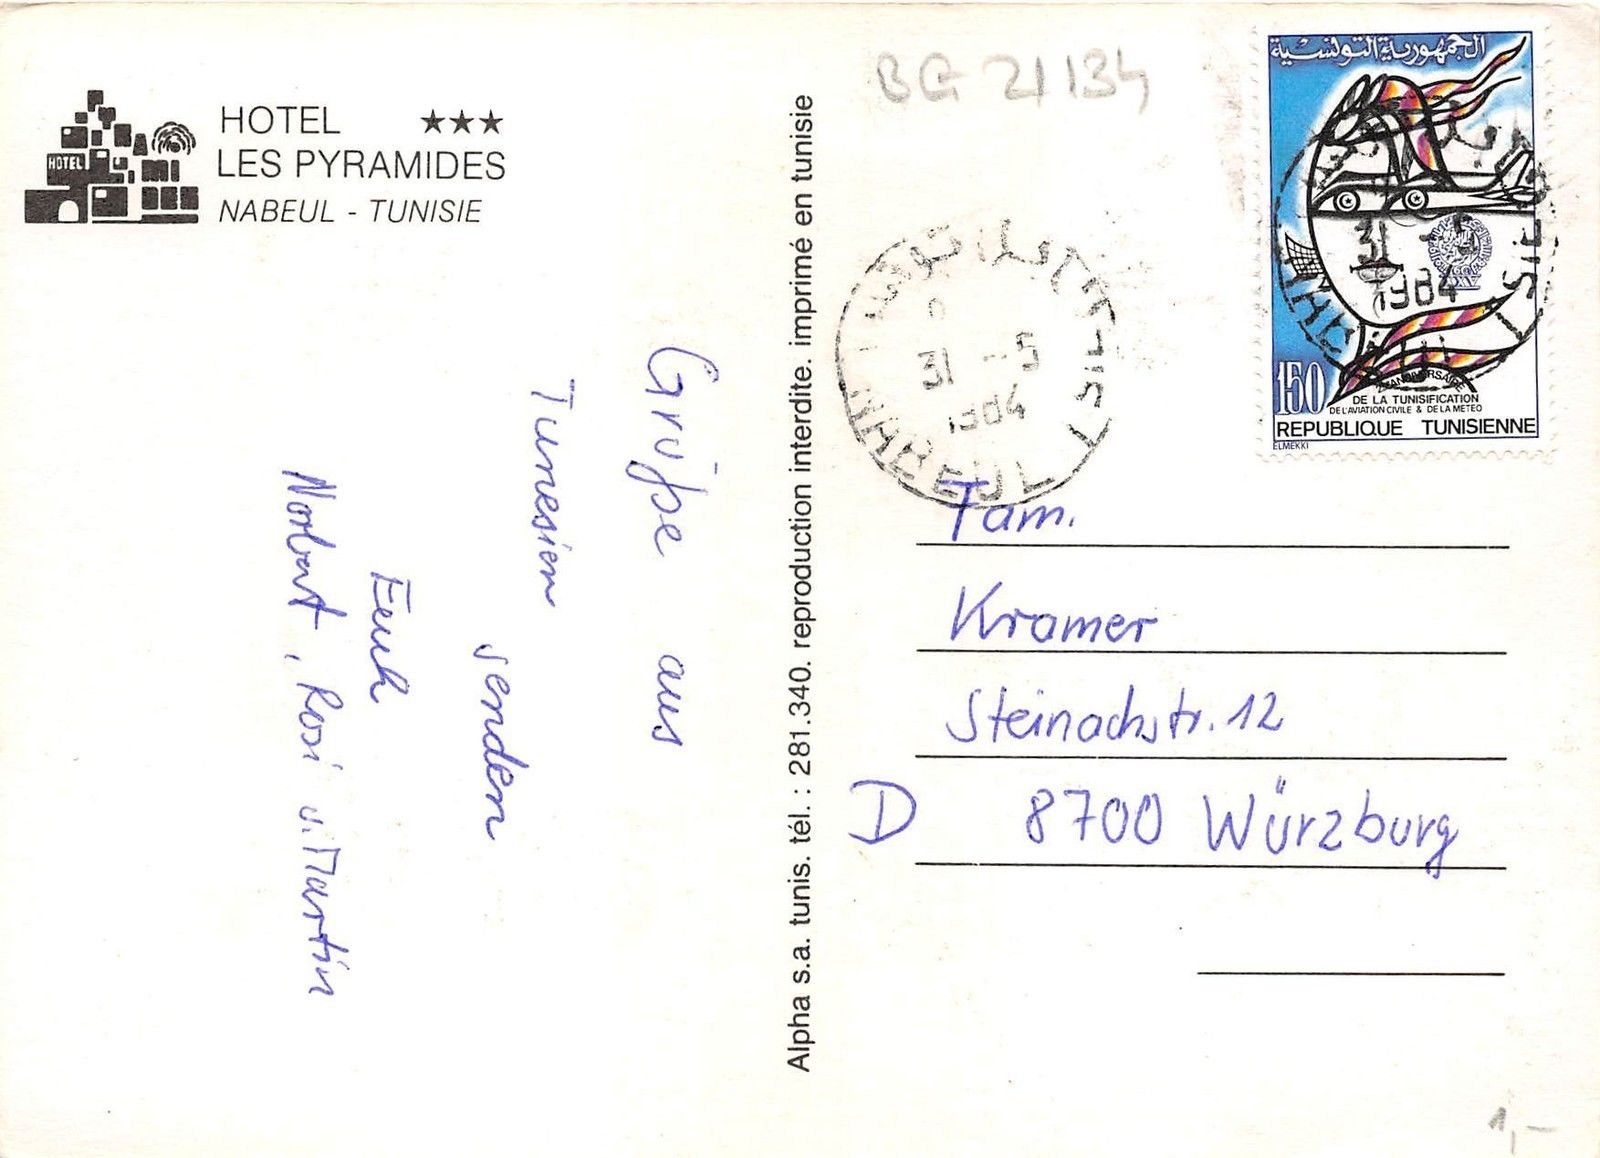 HOTEL ★★★
HOTEL
LES PYRAMIDES
NABEUL - TUNISIE
Grüße aus
Tunesien
senden
Euch
Norbert, Rosi u. Martin
Alpha s.a. tunis. tél. : 281.340. reproduction interdite. imprimé en tunisie
BG 21134
31 -5
1984
NABEUL
الجمهورية التونسية
31 -5
1984
150
ANNIVERSAIRE
DE LA TUNISIFICATION
DE L'AVIATION CIVILE & DE LA METEO
REPUBLIQUE TUNISIENNE
ELMEKKI
Fam.
Kramer
Steinachstr. 12
D 8700 Würzburg
1,-